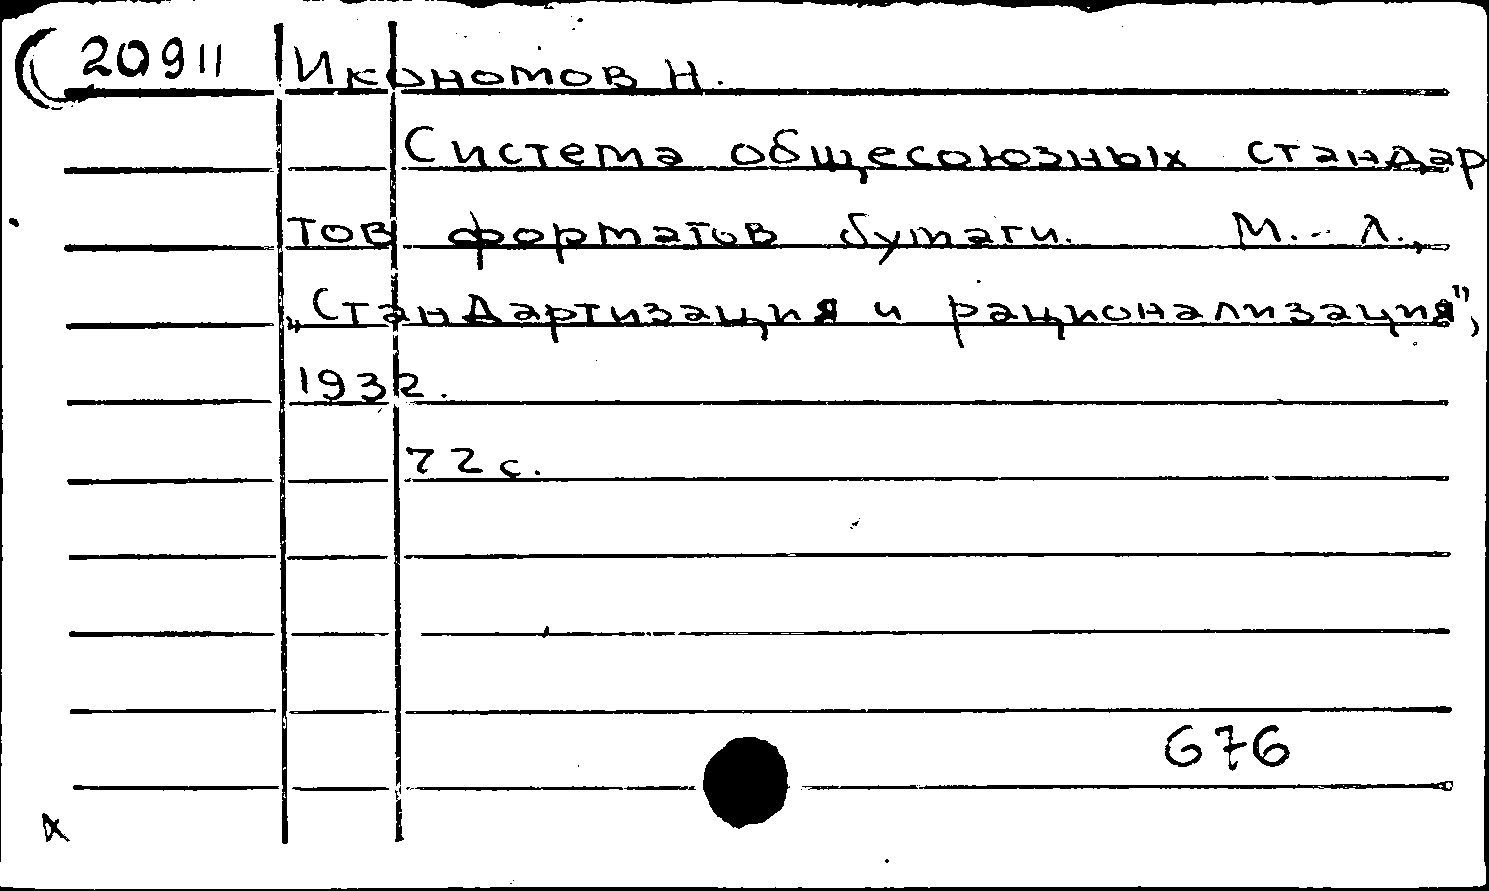 20911 Икономов Н.
Система общесоюзных стандар
тов форматов бумаги. М.-Л.,
„Стандартизация и рационализация",
1932.
72 с.
676